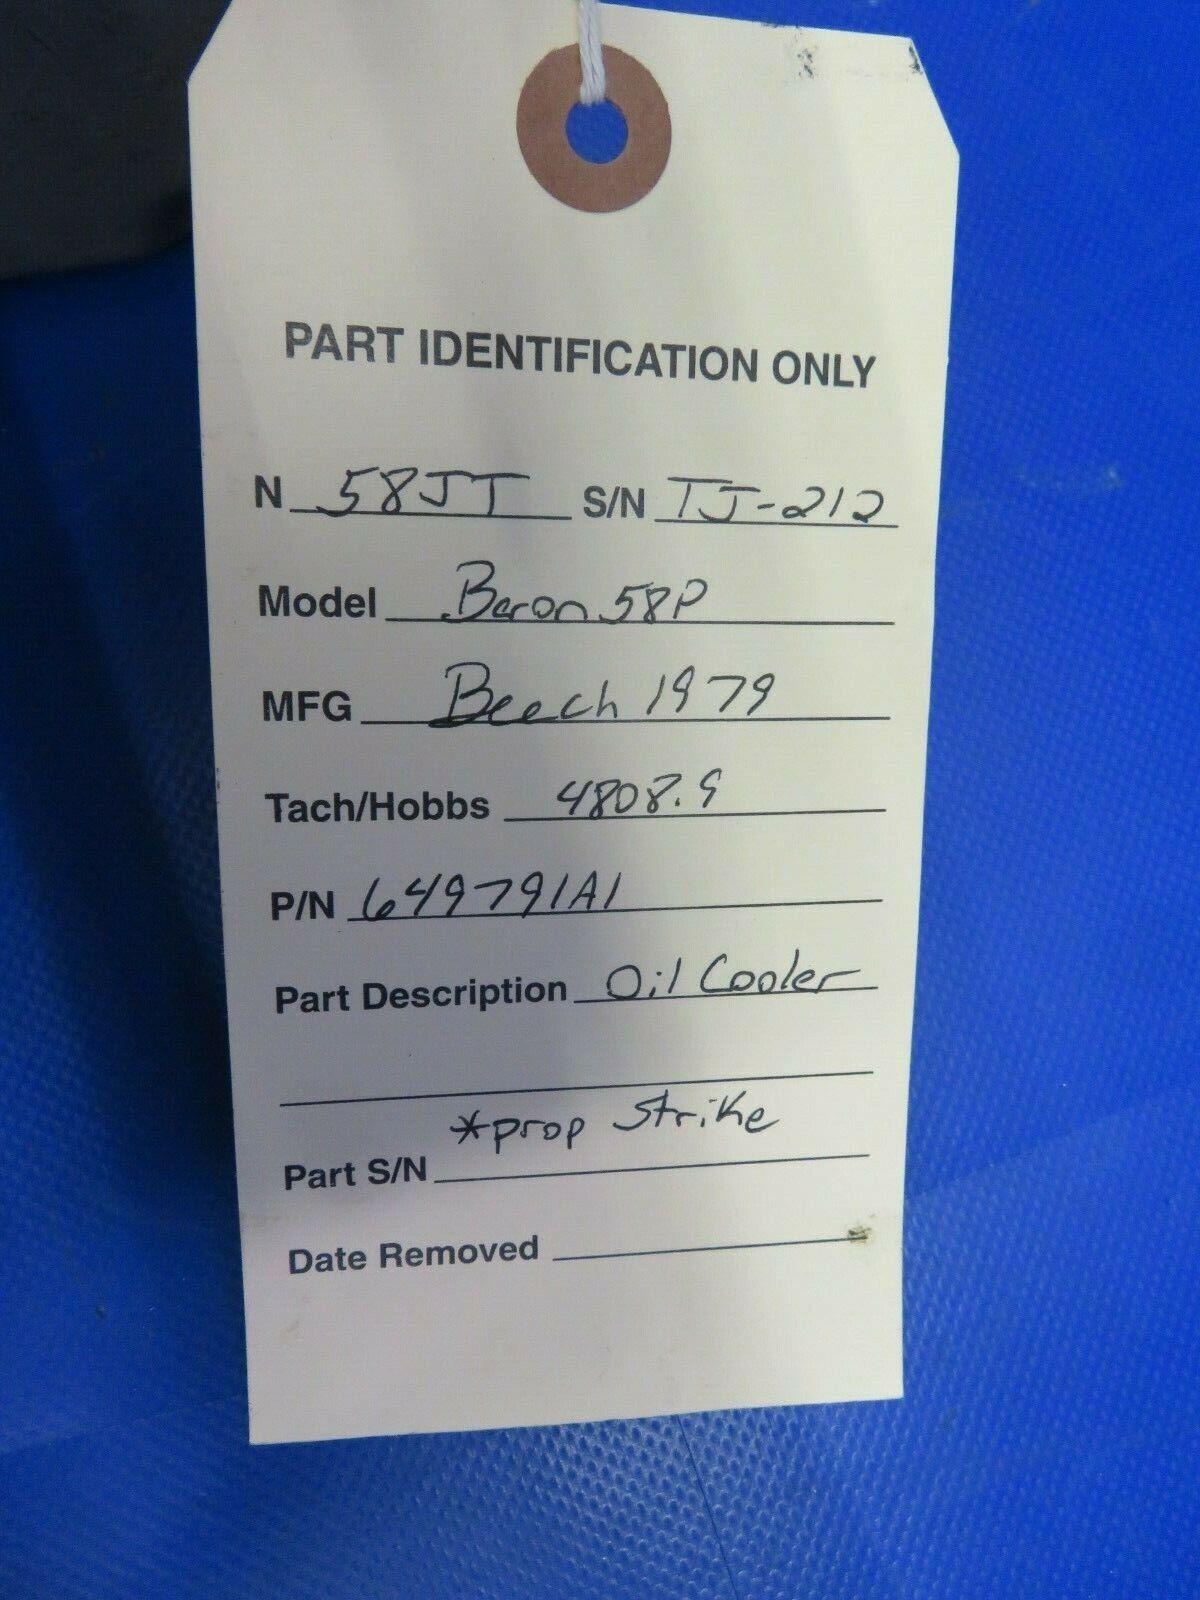 PART IDENTIFICATION ONLY
N 58JT S/N TJ-212
Model Baron 58P
MFG Beech 1979
Tach/Hobbs 4808.9
P/N 649791A1
Part Description Oil Cooler
*prop strike
Part S/N
Date Removed